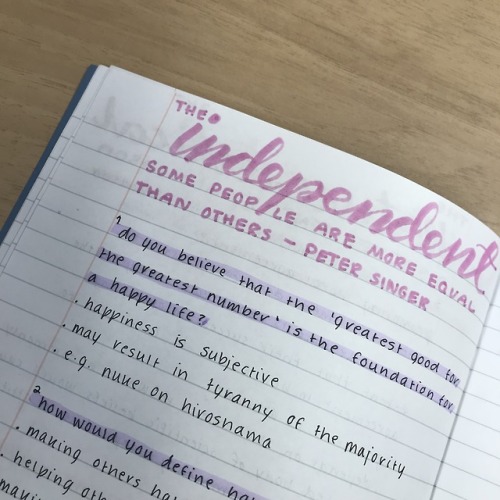 THE
independent
SOME PEOPLE ARE MORE EQUAL
THAN OTHERS - PETER SINGER
1
do you believe that the 'greatest good for
the greatest number' is the foundation for
a happy life?
· happiness is subjective
· may result in tyranny of the majority
· e.g. nuue on hiroshama
2
how would you define
· making others
· helping